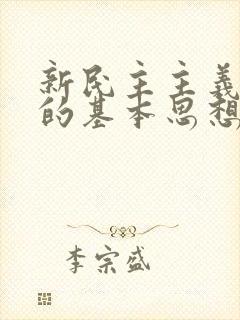 新民主主義
的基本思想
李宗盛